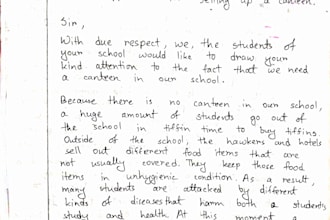 setting up a canteen.
Sir,
With due respect, we, the students of
your school would like to draw your
kind attention to the fact that we need
a canteen in our school.
Because there is no canteen in our school,
a huge amount of students go out of
the school in tiffin time to buy tiffins.
Outside of the school, the hawkers and hotels
sell out different food items that are
not usually covered. They keep those food
items in unhygienic condition. As a result,
many students are attacked by different
kinds of diseases that harm both a students
study and health. At this moment a